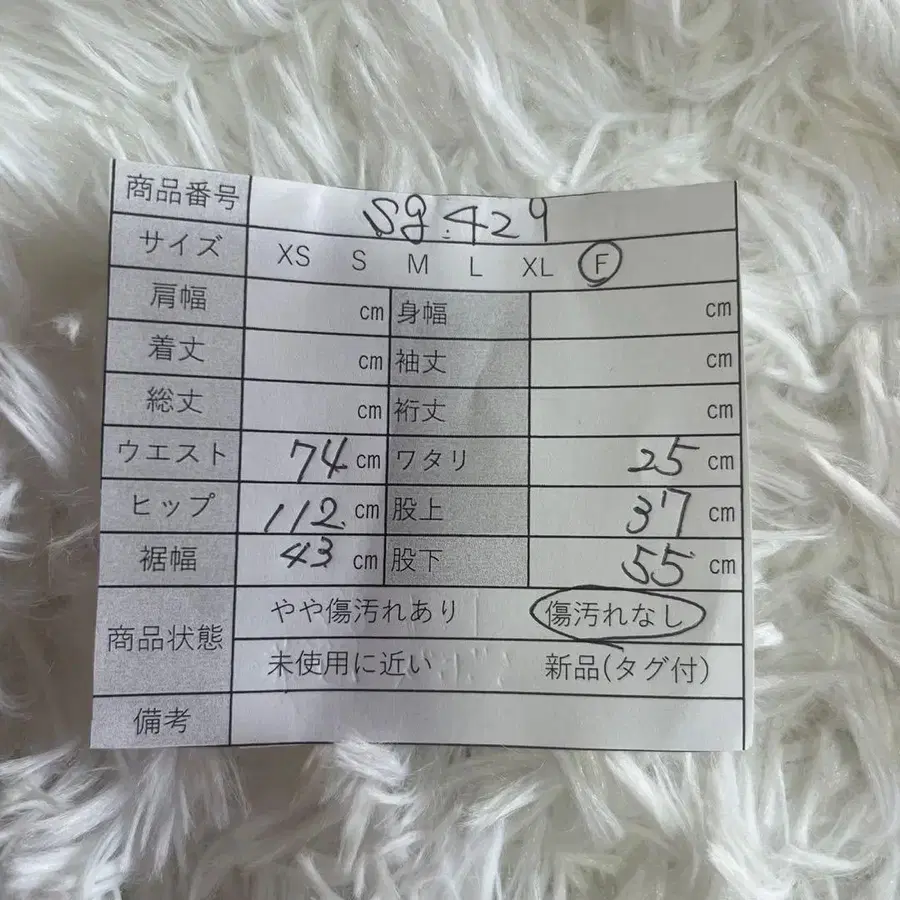 商品番号 sg.429
サイズ XS S M L XL F
肩幅 cm 身幅 cm
着丈 cm 袖丈 cm
総丈 cm 裄丈 cm
ウエスト 74 cm ワタリ 25 cm
ヒップ 112 cm 股上 37 cm
裾幅 43 cm 股下 55 cm
商品状態 やや傷汚れあり 傷汚れなし
未使用に近い 新品(タグ付)
備考